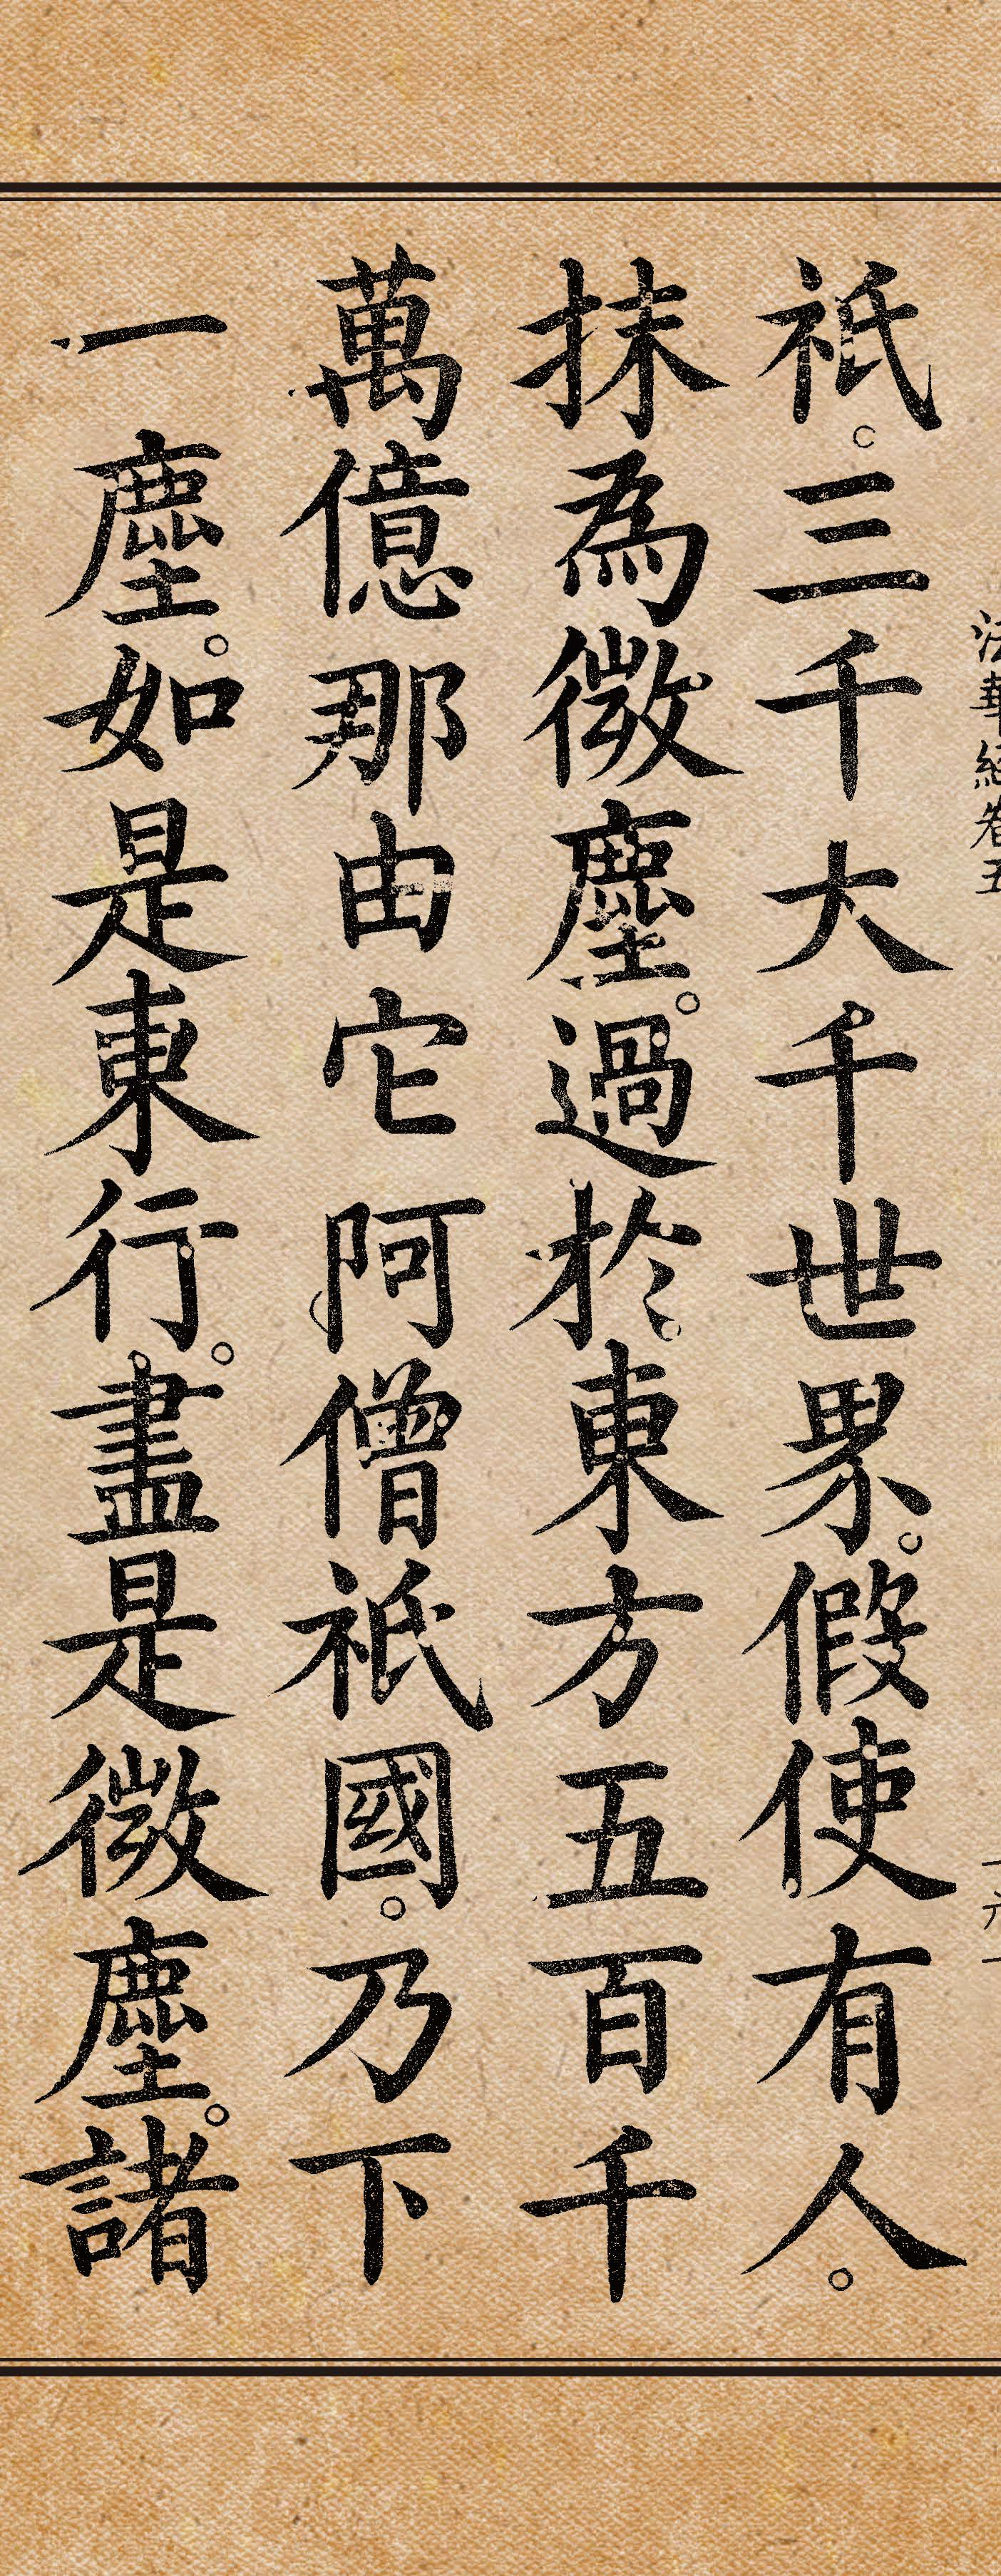 法華經卷五
祇。三千大千世界。假使有人。
抹為微塵。過於東方五百千
萬億那由它阿僧祇國。乃下
一塵。如是東行。盡是微塵。諸